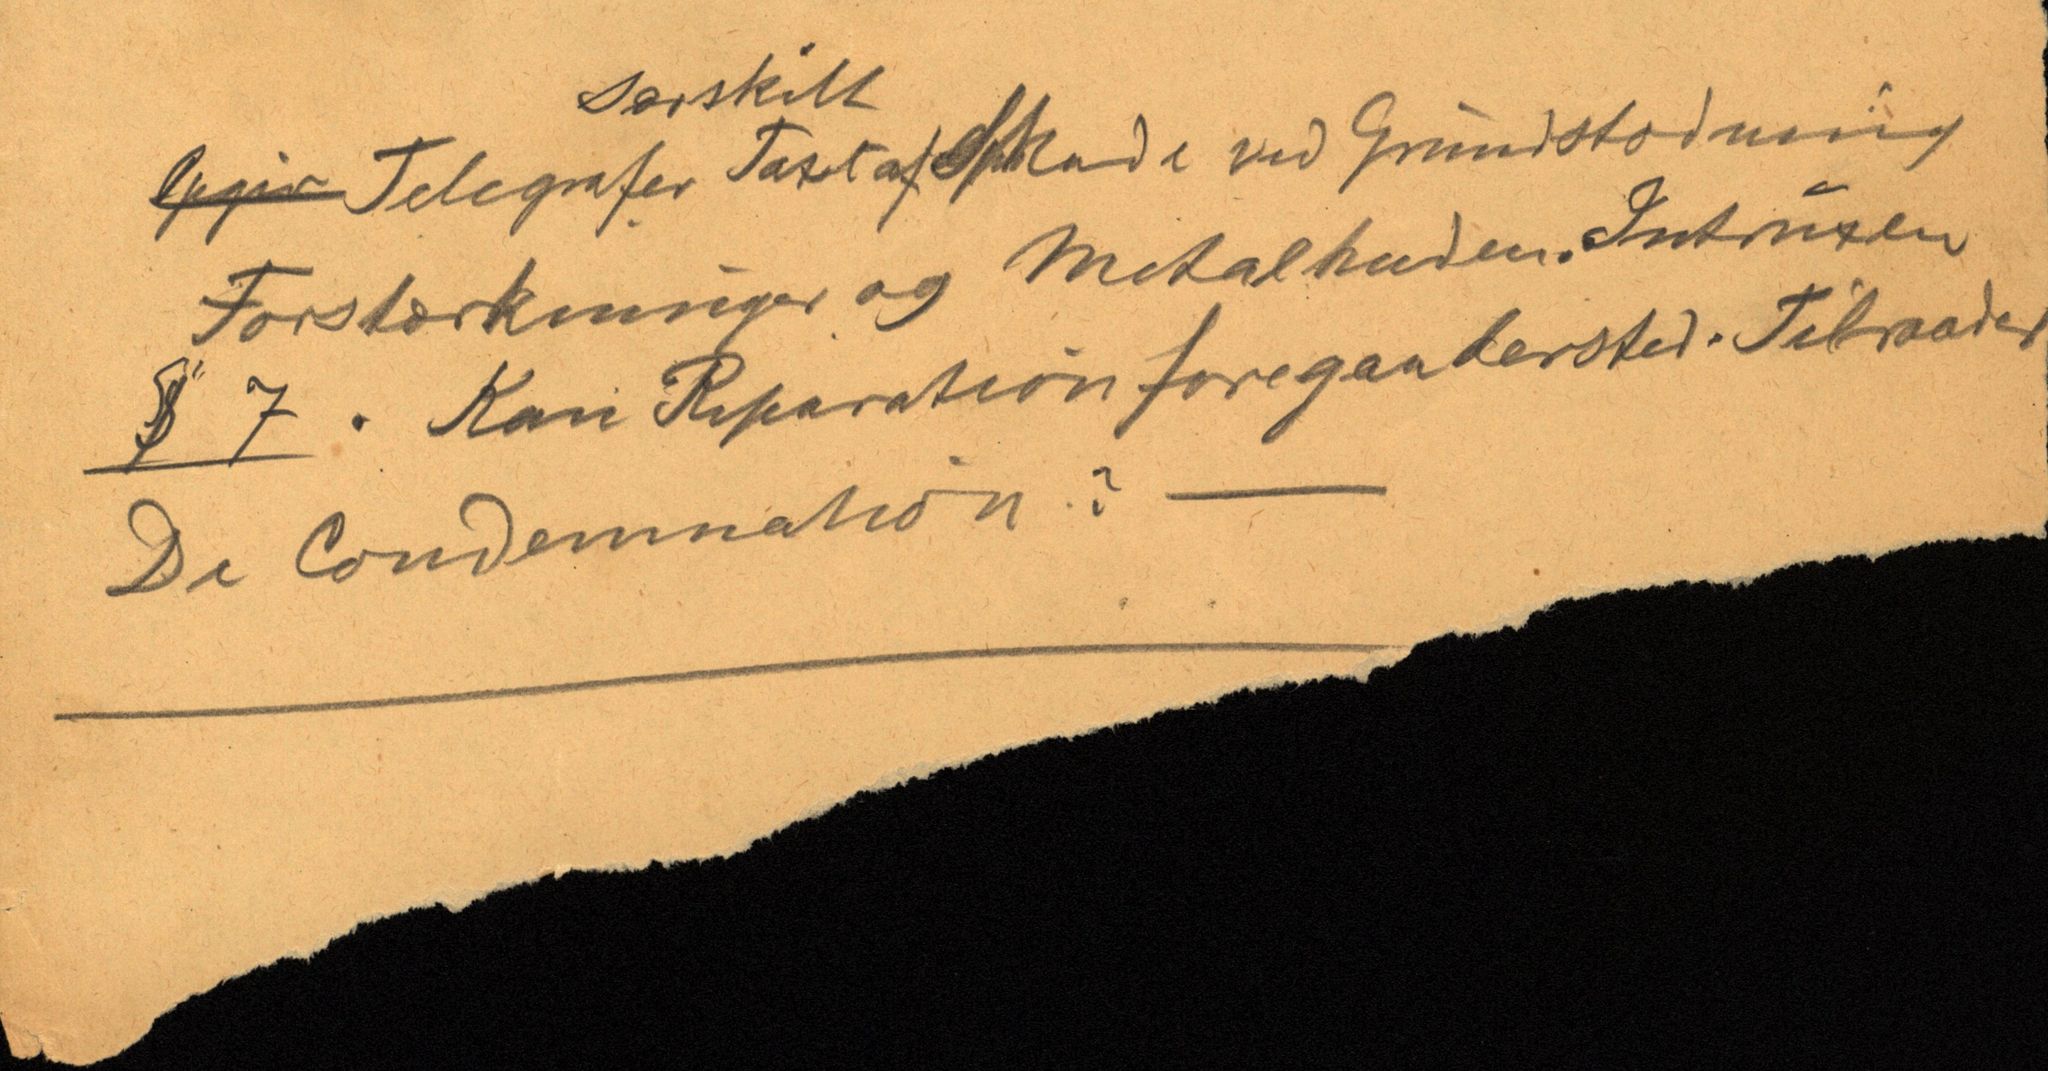 særskilt
Opgiv Telegrafer Taxt af Skade ved Grundstødning
Forstærkninger og Metalhuden. Intruxen
§ 7. Kan Reparation foregaa dersted. Tilraader
De Condemnation? —